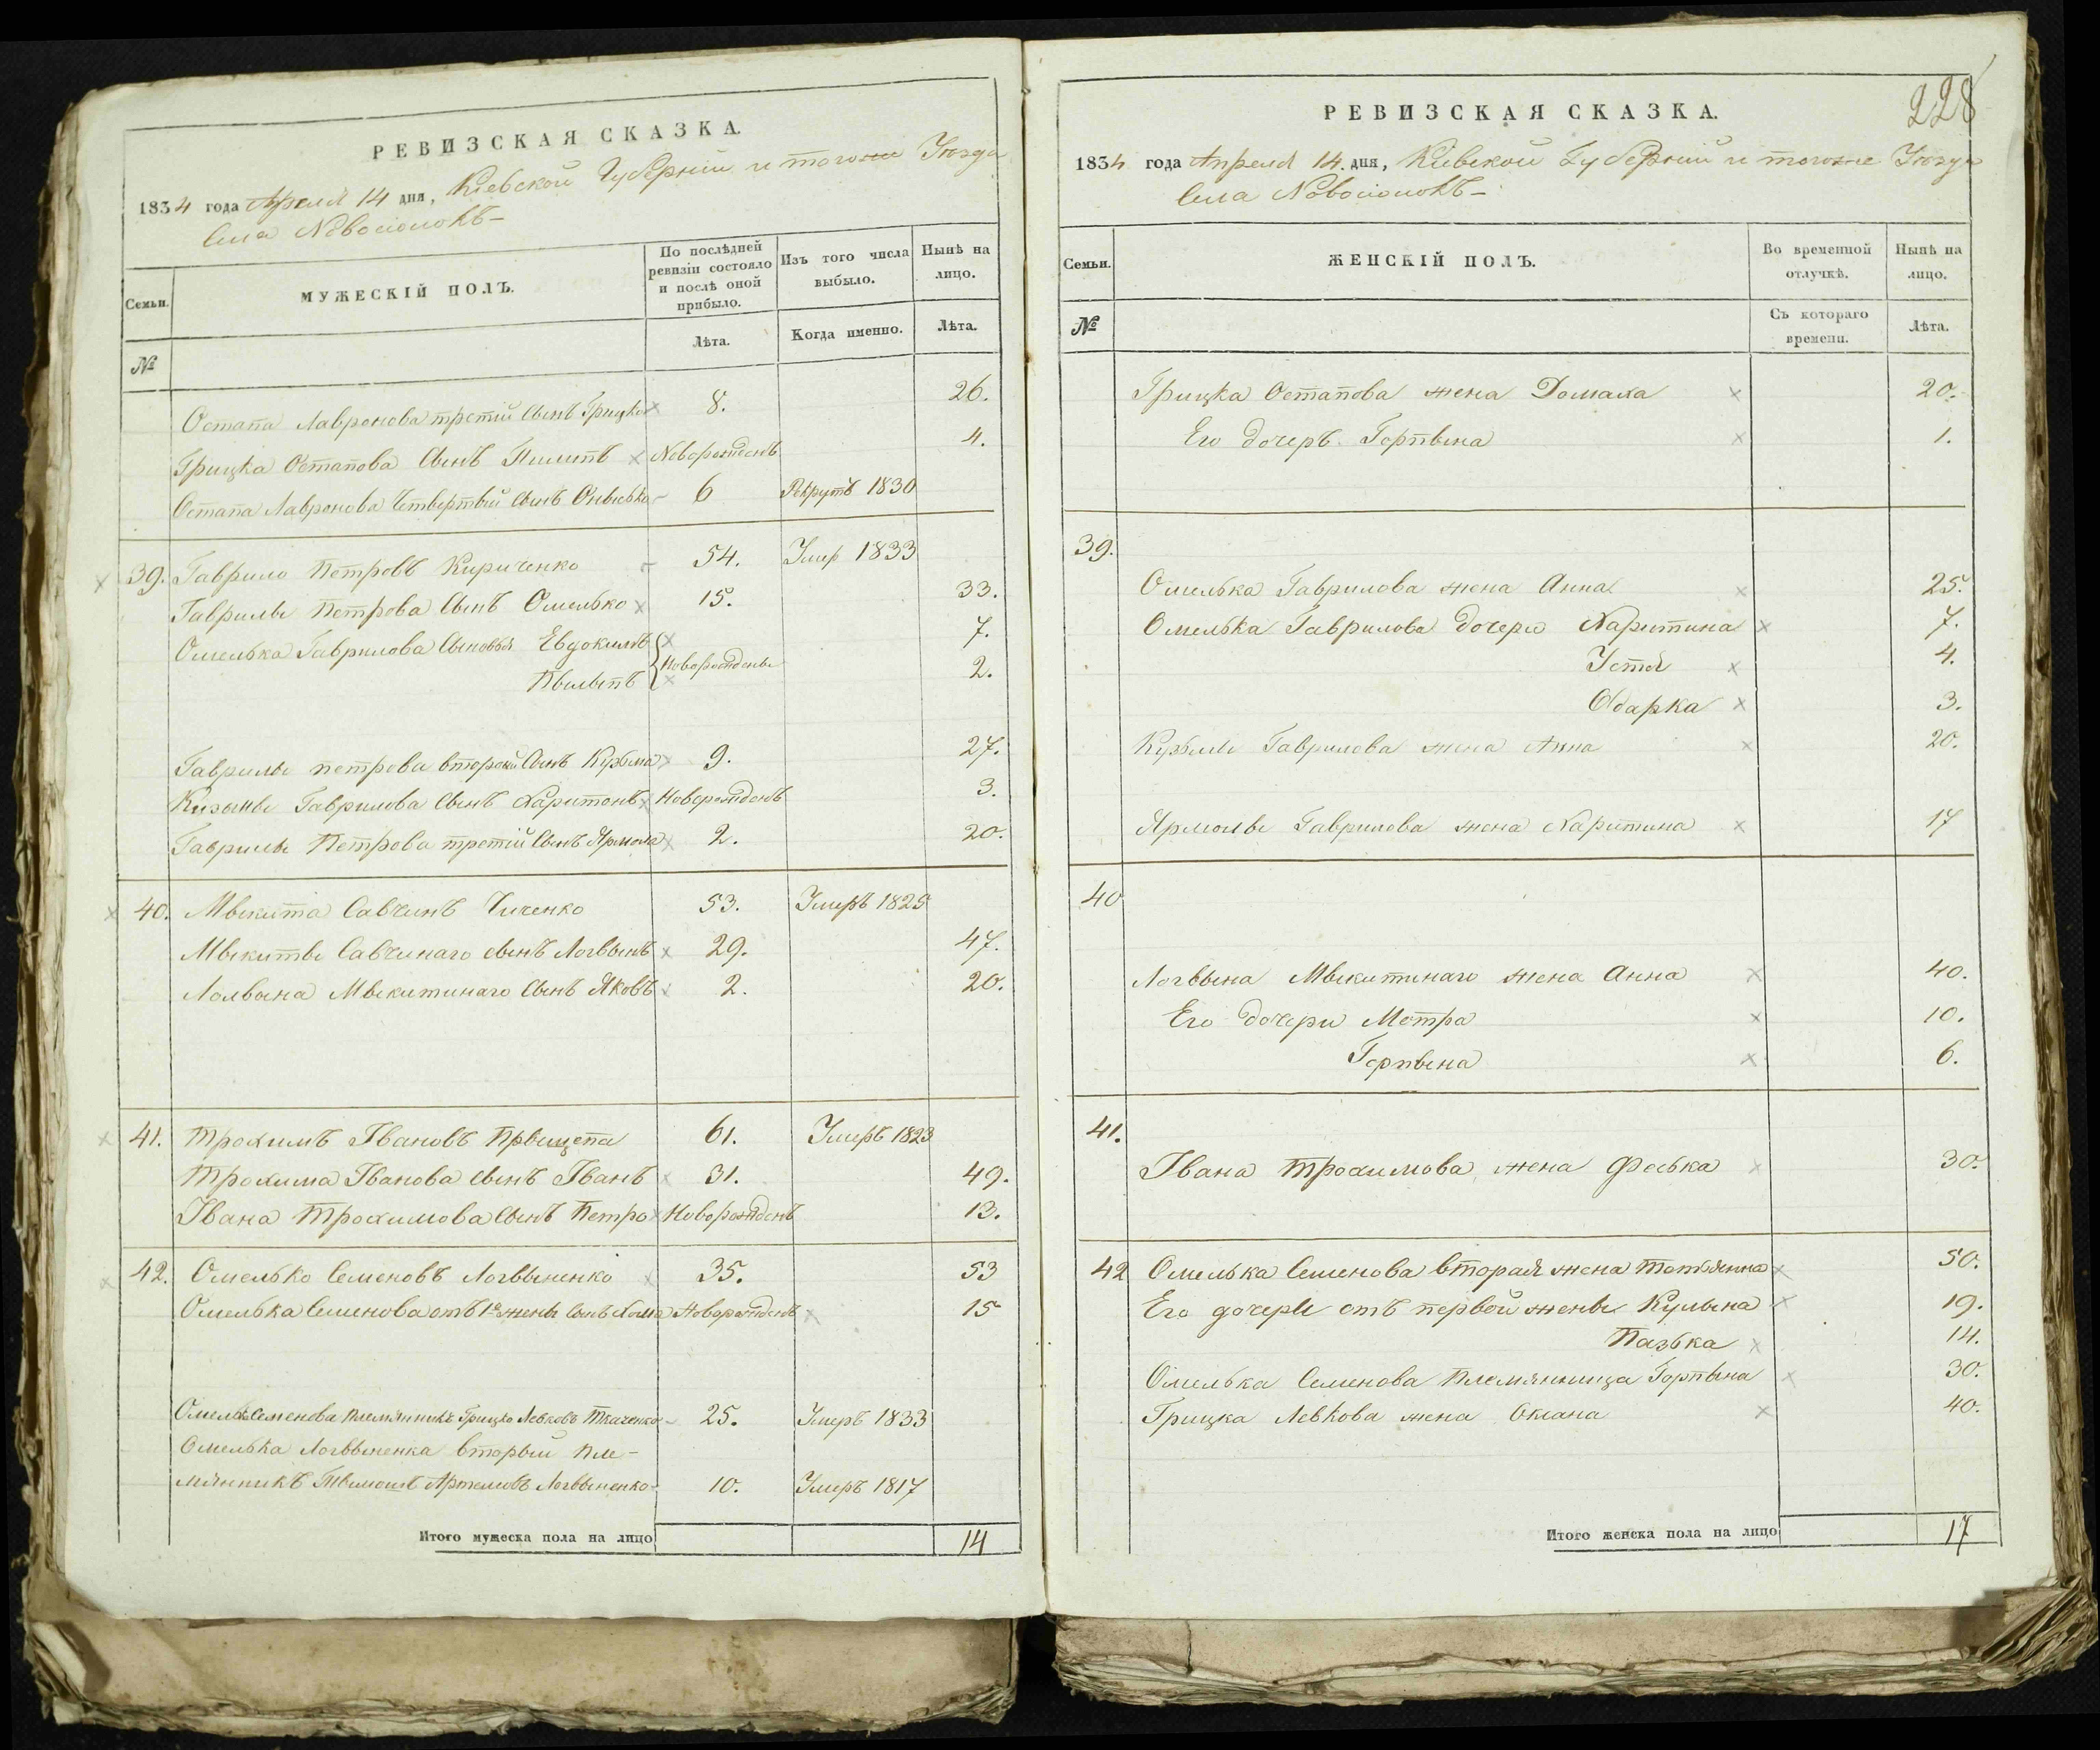 РЕВИЗСКАЯ СКАЗКА.
1834 года Апреля 14 дня, Кіевской Губерніи и тогоже Уѣзда
Села Новосіолокъ-
Семьи.
МУЖЕСКІЙ ПОЛЪ.
По послѣдней ревизіи состояло и послѣ оной прибыло.
Изъ того числа выбыло.
Нынѣ на лицо.
№
Лѣта.
Когда именно.
Лѣта.
Остапа Лавронова третій сынъ Грицко 8. 26.
Грицка Остапова сынъ Пилипъ Новорожденъ 4.
Остапа Лавронова четвертый сынъ Онысько 6 Рекрутъ 1830
39. Гаврило Петровъ Кириченко 54. Умер 1833
Гаврилы Петрова сынъ Омелько 15. 33.
Омелька Гаврилова сыновья Евдокимъ 7.
Новорожденые
Пылыпъ 2.
Гаврилы петрова второй сынъ Кузьма 9. 27.
Кузьмы Гаврилова сынъ Харитонъ Новорожденъ 3.
Гаврилы Петрова третій сынъ Ярмола 2. 20.
40. Мыкита Савчинъ Чиченко 53. Умеръ 1825
Мыкиты Савчинаго сынъ Логвынъ 29. 47.
Логвына Мыкитинаго сынъ Яковъ 2. 20.
41. Трохимъ Івановъ Прыщепа 61. Умеръ 1823
Трохима Іванова сынъ Іванъ 31. 49.
Івана Трохимова сынъ Петро Новорожденъ 13.
42. Омелько Семеновъ Логвыненко 35. 53
Омелька Семенова отъ 1й жены сынъ Хома Новорожденъ 15
Омелька Семенова племянникъ Грицко Левковъ Ткаченко 25. Умеръ 1833
Омелька Логвыненка вторый пле-
мянникъ Тымошъ Артемовъ Логвыненко 10. Умеръ 1817
Итого мужеска пола на лицо 14
228
РЕВИЗСКАЯ СКАЗКА.
1834 года Апреля 14. дня, Кіевской Губерніи и тогоже Уѣзда
Села Новосіолокъ-
Семьи.
ЖЕНСКІЙ ПОЛЪ.
Во временной отлучкѣ.
Нынѣ на лицо.
№
Съ котораго времени.
Лѣта.
Грицка Остапова жена Домаха 20.
Его дочеръ Горпына 1.
39.
Омелька Гаврилова жена Анна 25.
Омелька Гаврилова дочери Харитина 7.
Устя 4.
Одарка 3.
Кузьмы Гаврилова жена Анна 20.
Ярмолы Гаврилова жена Харитина 17
40
Логвына Мыкитинаго жена Анна 40.
Его дочери Мотра 10.
Горпына 6.
41.
Івана Трохимова жена Феська 30.
42 Омелька Семенова вторая жена Татьянна 50.
Его дочери отъ первой жены Кулына 19.
Пазька 14.
Омелька Семенова племянница Горпына 30.
Грицка Левкова жена Оксана 40.
Итого женска пола на лицо 17